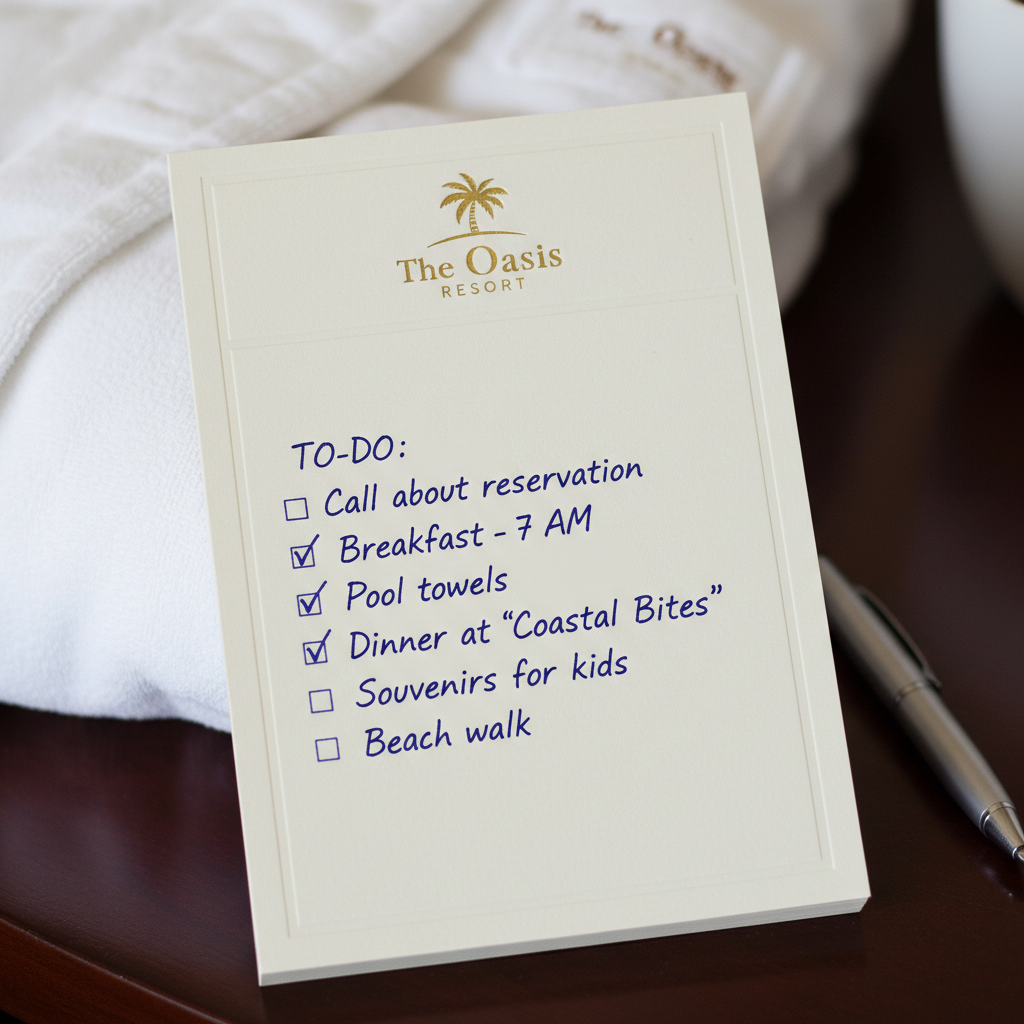 The Oasis
RESORT
TO-DO:
☐ Call about reservation
☑ Breakfast - 7 AM
☑ Pool towels
☑ Dinner at “Coastal Bites”
☐ Souvenirs for kids
☐ Beach walk